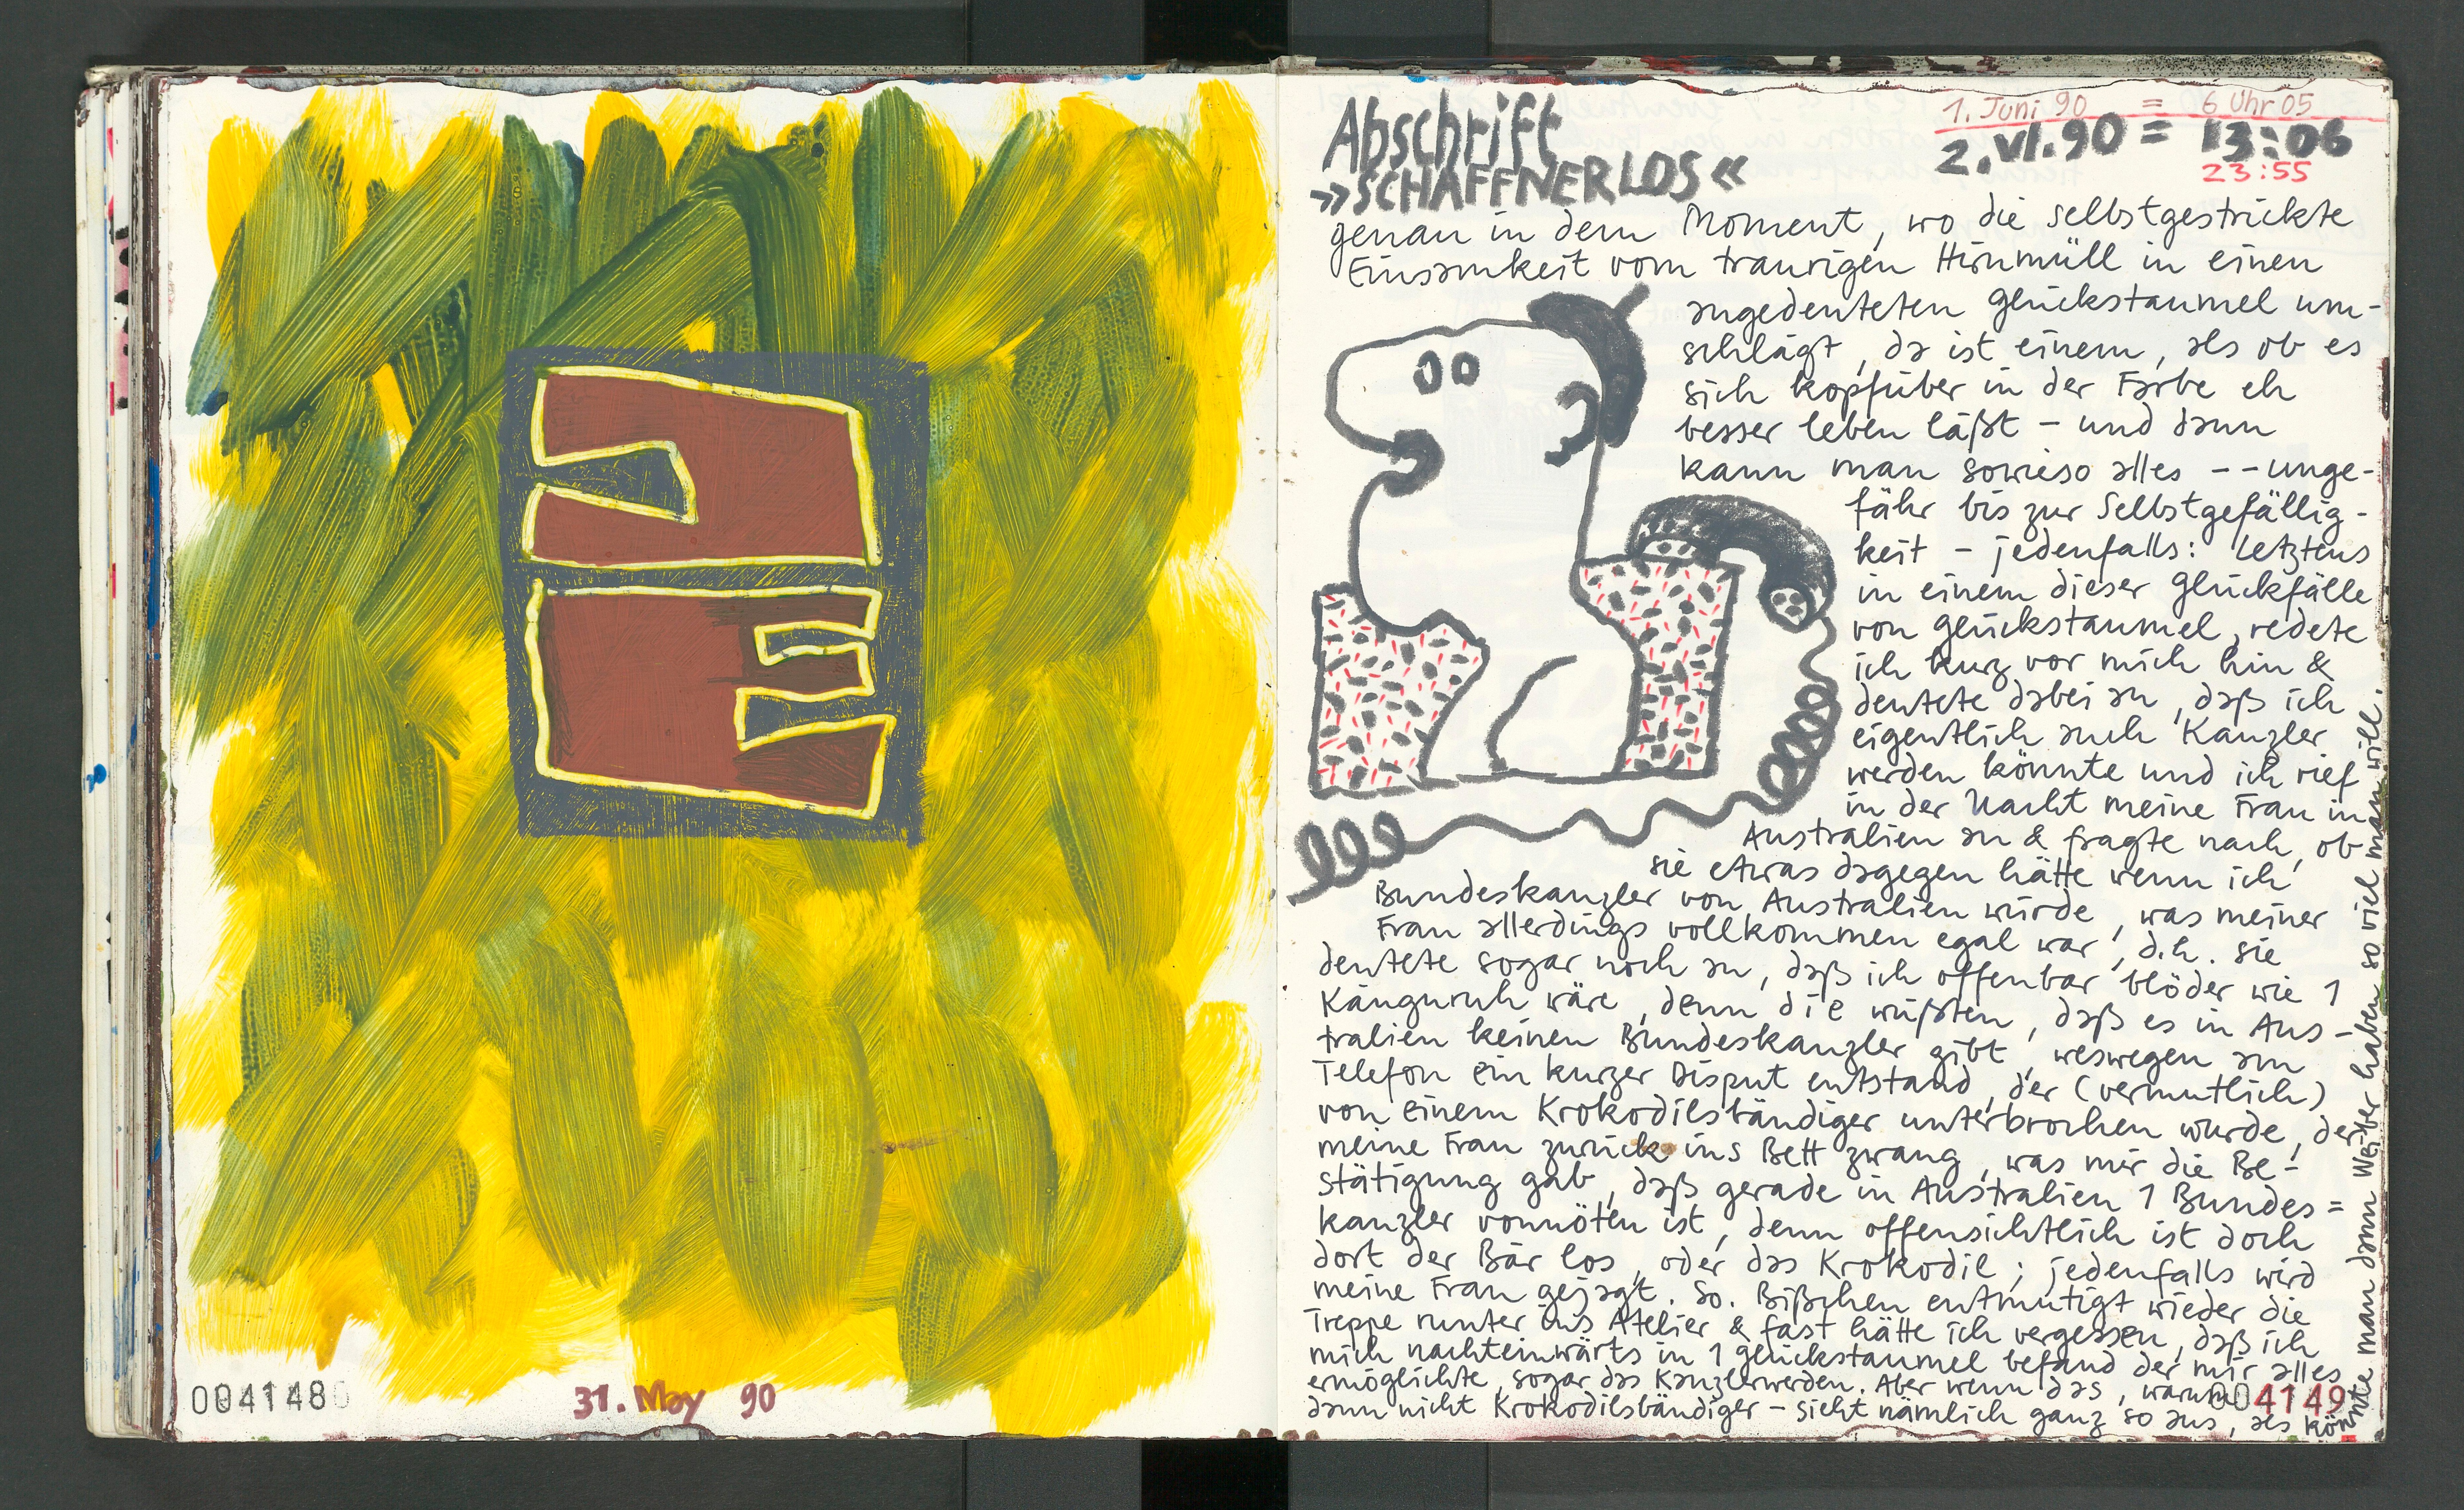 0041480
31. May 90
Abschrift
»SCHAFFNERLOS«
1. Juni 90 = 6 Uhr 05
2. VI. 90 = 13:06
23:55
genau in dem Moment, wo die selbstgestrickte
Einsamkeit vom traurigen Hirnmüll in einen
angedeuteten Glückstaumel um-
schlägt, da ist einem, als ob es
sich kopfüber in der Farbe eh
besser leben läßt - und dann
kann man sowieso alles -- unge-
fähr bis zur Selbstgefällig-
keit - jedenfalls: letztens
in einem dieser Glückfälle
von Glückstaumel, redete
ich kurz vor mich hin &
deutete dabei an, daß ich
eigentlich auch Kanzler
werden könnte und ich rief
in der Nacht meine Frau in
Australien an & fragte nach, ob
sie etwas dagegen hätte wenn ich
Bundeskanzler von Australien würde, was meiner
Frau allerdings vollkommen egal war, d.h. sie
deutete sogar noch an, daß ich offenbar blöder wie 1
Känguruh wäre, denn die wüßten, daß es in Aus-
tralien keinen Bundeskanzler gibt, weswegen am
Telefon ein kurzer Disput entstand, der (vermutlich)
von einem Krokodilsbändiger unterbrochen wurde, der
meine Frau zurück ins Bett zwang, was mir die Be-
stätigung gab, daß gerade in Australien 1 Bundes=
kanzler vonnöten ist, denn offensichtlich ist doch
dort der Bär los, oder das Krokodil; jedenfalls wird
meine Frau gejagt. So. Bißchen entmutigt wieder die
Treppe runter ins Atelier & fast hätte ich vergessen, daß ich
mich nachteinwärts in 1 Glückstaumel befand der mir alles
ermöglichte, sogar das Kanzlerwerden. Aber wenn das, warum
dann nicht Krokodilsbändiger - sieht nämlich ganz so aus, als könnte man dann Weiber haben so viel man will.
004149